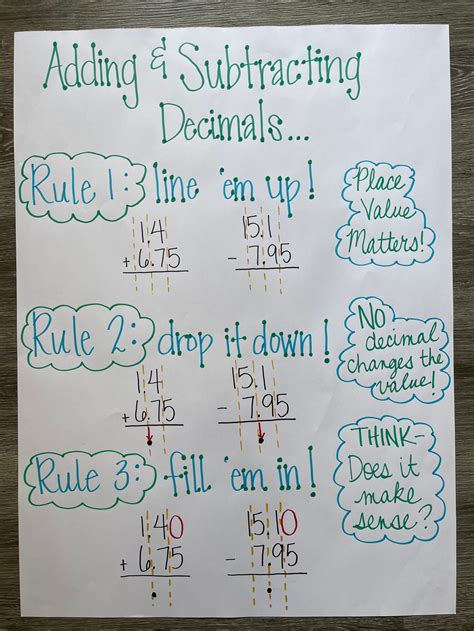 Adding & Subtracting
Decimals...
Rule 1: line 'em up!
1.4
+ 6.75
15.1
- 7.95
Place
Value
Matters!
Rule 2: drop it down!
1.4
+ 6.75
.
15.1
- 7.95
.
NO
decimal
changes the
value!
Rule 3: fill 'em in!
1.40
+ 6.75
.
15.10
- 7.95
.
THINK-
Does it
make
sense?